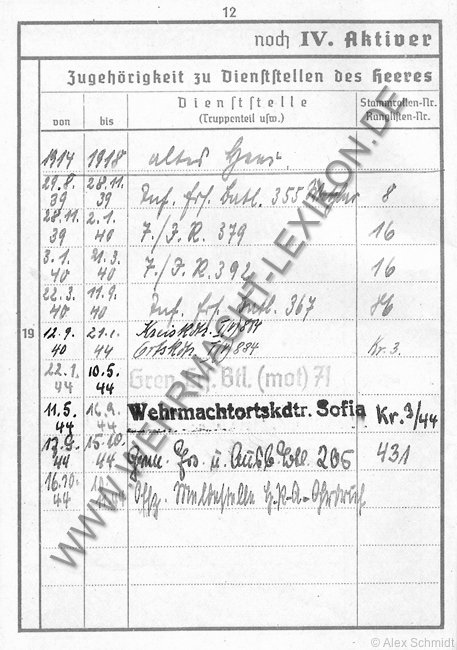 12
noch IV. Aktiver
Zugehörigkeit zu Dienststellen des Heeres
von bis Dienststelle (Truppenteil usw.) Stammrollen-Nr. Ranglisten-Nr.
1914 1918 altes Heer.
29.8. 39 28.11. 39 Inf. Ers. Batl. 355 8
28.11. 39 2.1. 40 7./J.R. 379 16
3.1. 40 21.3. 40 7./J.R. 392 16
22.3. 40 11.9. 40 Inf. Ers. Batl. 367 86
19
12.9. 40 21.1. 44 Kreiskdtr.
Ortskdtr. Kr. 3.
22.1. 44 10.5. 44 Gren. Btl. (mot) 71
11.5. 44 16.9. 44 Wehrmachtortskdtr. Sofia Kr. 3/44
17.9. 44 15.10. 44 Gren. Ers. u. Ausb. Btl. 205 431
16.10. 44 Offz. Meldestelle
WWW.WEHRMACHT-LEXIKON.DE
© Alex Schmidt